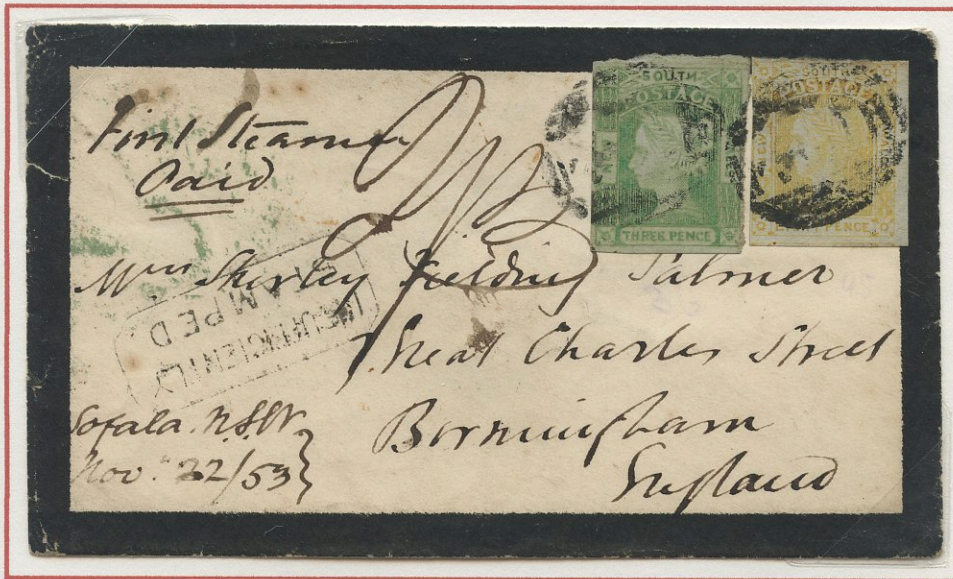 First Steamer
Paid
2/3
SOUTH
POSTAGE
NEW
WALES
THREE PENCE
SOUTH
POSTAGE
NEW
PENCE
Mrs Shirley Fielding Palmer
Great Charles Street
Birmingham
England
INSUFFICIENTLY
STAMPED
Sofala. N.S.W
Nov. 22/53